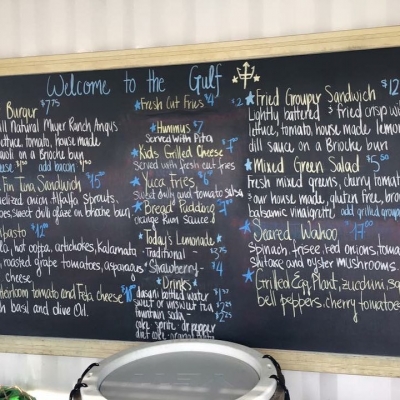 Welcome to the Gulf
Burger $7.75
Natural Meyer Ranch Angus
lettuce, tomato, house made
aioli on a Brioche bun
cheese add bacon
Fin Tuna Sandwich $15
onion alfalfa sprouts,
sweet chili glaze on brioche bun
$12
hot coppa, artichokes, Kalamata
roasted grape tomatoes, asparagus
cheese
heirloom tomato and Feta cheese $8
basil and olive Oil.
Fresh Cut Fries $4
Hummus $7
Served with Pita
Kids Grilled Cheese
served with fresh cut fries
Yuca fries
sweet chili and tomato salsa
Bread Pudding
orange Rum Sauce
Today's Lemonade
- Traditional -
- Strawberry - $4
Drinks
dasani bottled water
sweet or unsweet tea
fountain soda
coke sprite dr pepper
diet coke
Fried Grouper Sandwich $12
Lightly battered & fried crisp
lettuce, tomato, house made lemon
dill sauce on a Brioche bun
Mixed Green Salad $5.50
Fresh mixed greens, cherry tomato
our house made, gluten free,
balsamic vinaigrette add grilled
Seared Wahoo
spinach, frisee, red onions,
shitake and oyster mushrooms
Grilled Egg Plant, zucchini,
bell peppers, cherry tomatoes